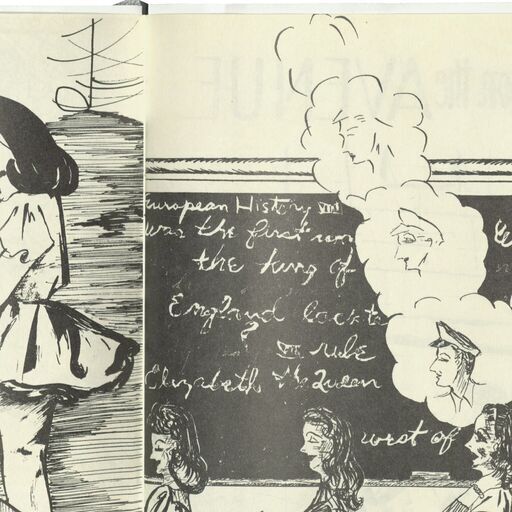 European History VIII
was the first
the king of
England
VIII rule
Elizabeth the Queen
west of